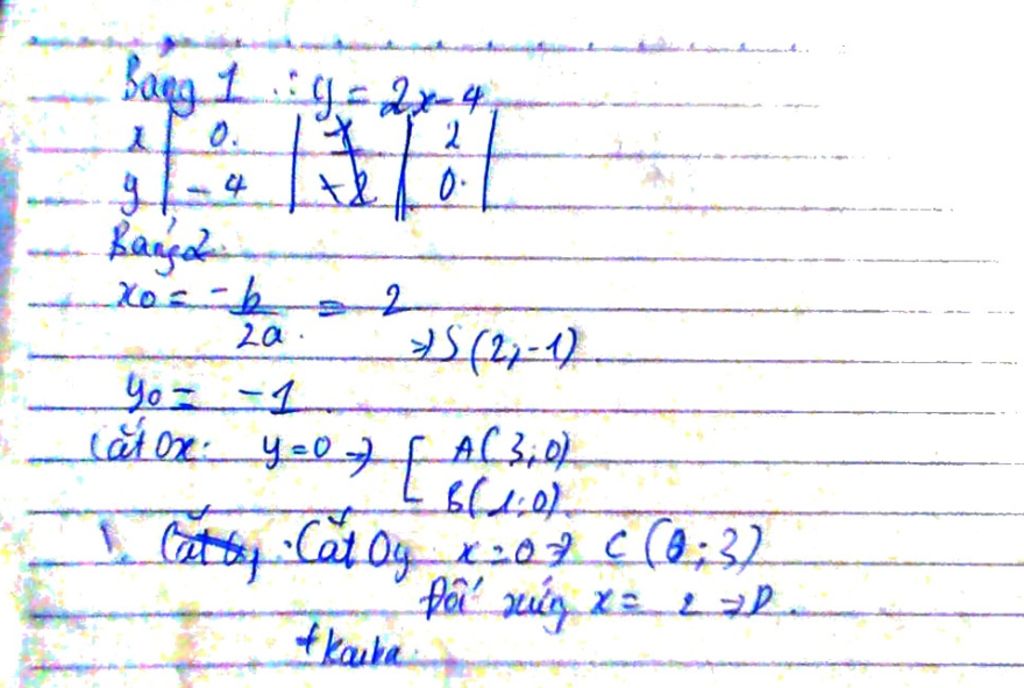 Bảng 1 : y = 2x - 4
x | 0. | | 2 |
y | - 4 | | 0. |
Bảng 2.
x0 = -b/2a = 2
=> S (2; -1)
y0 = -1
Cắt Ox: y = 0 => [ A( 3; 0)
B( 1; 0).
Cắt Oy . Cắt Oy x = 0 => C ( 0 ; 3)
Đối xứng x = 2 => D.